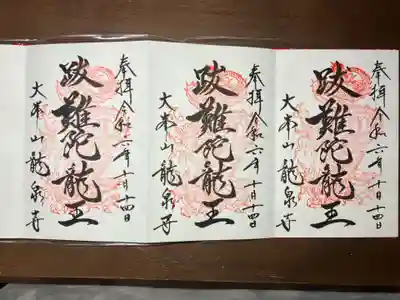 奉拝 令和六年 十月十四日
跋難陀龍王
大本山龍泉寺
奉拝 令和六年 十月十四日
跋難陀龍王
大本山龍泉寺
奉拝 令和六年 十月十四日
跋難陀龍王
大本山龍泉寺